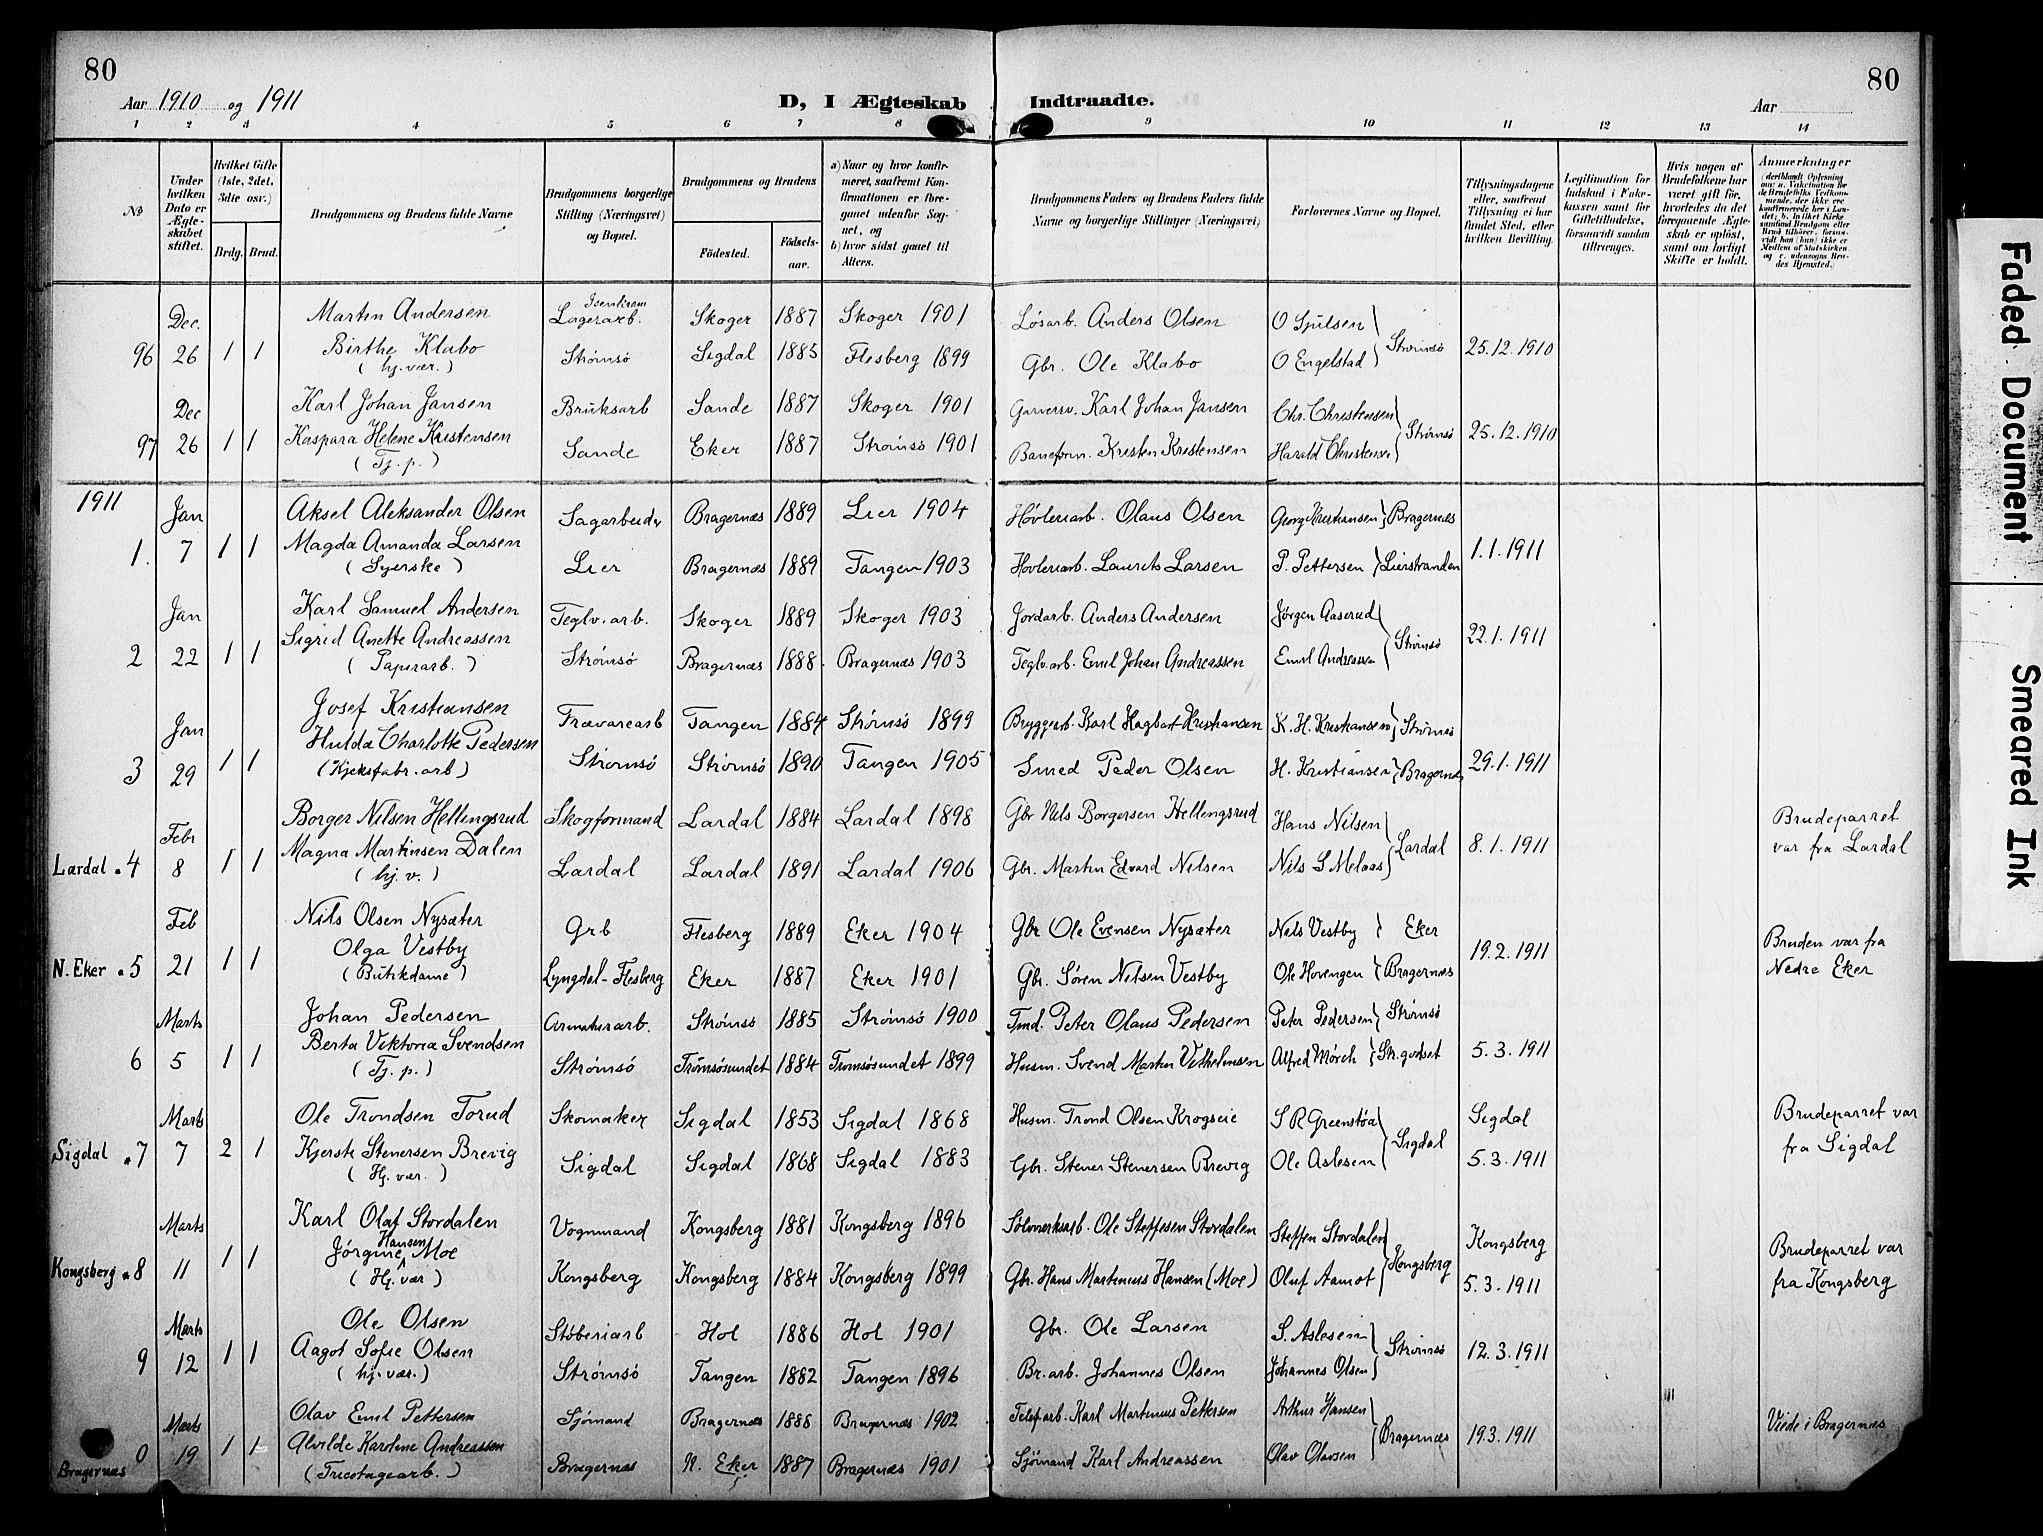 80
80
Aar 1910 og 1911
D, I Ægteskab Indtraadte.
Aar
1 2 3 4 5 6 7 8 9 10 11 12 13 14
№
Under hvilken Dato er Ægteskabet stiftet.
Hvilket Gifte (1ste, 2det, 3die osv.)
Brdg. Brud.
Brudgommens og Brudens fulde Navne
Brudgommens borgerlige Stilling (Næringsvei) og Bopæl.
Brudgommens og Brudens
Fødested.
Fødselsaar.
a) Naar og hvor konfirmeret, saafremt Konfirmationen er foregaaet udenfor Sognet, og
b) hvor sidst gaaet til Alters.
Brudgommens Faders og Brudens Faders fulde Navne og borgerlige Stillinger (Næringsvei)
Forlovernes Navne og Bopæl.
Tillysningsdagene eller, saafremt Tillysning ei har fundet Sted, efter hvilken Bevilling.
Legitimation for Indskud i Enkekassen samt for Giftetilladelse, forsaavidt saadan tiltrænges.
Hvis nogen af Brudefolkene har været gift før, hvorledes da det foregaaende Ægteskab er opløst, samt om lovligt Skifte er holdt.
Anmærkninger (deriblandt Oplysning om: a. Vakcination for de Brudefolks Vedkommende, der ikke ere konfirmerede her i Landet; b. hvilket Kirkesamfund Brudgom eller Brud tilhører, forsaavidt han (hun) ikke er Medlem af Statskirken og c. udensogns Brudes Hjemsted.)
Dec. Martin Andersen Isenkram Lagerarb. Skoger 1887 Skoger 1901 Løsarb. Anders Olsen O Sjulsen
96 26 1 1 Birthe Klabo Strømsø Sigdal 1885 Flesberg 1899 Gbr. Ole Klabo O Engelstad Strømsø 25.12.1910
(hj. vær.)
Dec Karl Johan Jansen Bruksarb Sande 1887 Skoger 1901 Garversv. Karl Johan Jansen Chr. Christensen
97 26 1 1 Kaspara Helene Kristensen Sande Eker 1887 Strømsø 1901 Baneform. Kresten Kristensen Harald Christensen Strømsø 25.12.1910
(Tj. p.)
1911
Jan Aksel Aleksander Olsen Sagarbeider Bragernæs 1889 Lier 1904 Høvleriarb. Olaus Olsen Georg Kristiansen Bragernæs
1. 7 1 1 Magda Amanda Larsen Lier Bragernæs 1889 Tangen 1903 Høvleriarb. Laurits Larsen P. Pettersen Lierstranden 1.1.1911
(Syerske)
Jan Karl Samuel Andersen Teglv. arb. Skoger 1889 Skoger 1903 Jordarb. Anders Andersen Jørgen Aaserud
2 22 1 1 Sigrid Anette Andreassen Strømsø Bragernæs 1888. Bragernæs 1903 Teglv. arb. Emil Johan Andreassen Emil Andreassen Strømsø 22.1.1911
(Papirarb.)
Jan Josef Kristiansen Trævarearb Tangen 1884 Strømsø 1899 Bryggerarb. Karl Hagbart Kristiansen K. H. Kristiansen Strømsø
3 29 1 1 Hulda Charlotte Pedersen Strømsø Strømsø 1890 Tangen 1905 Smed Peder Olsen H. Kristiansen Bragernæs 29.1.1911
(Kjeksfabr. arb)
Febr Borger Nilsen Hellingsrud Skogformand Lardal 1884 Lardal 1898 Gbr Nils Borgersen Hellengsrud Hans Nilsen
Lardal 4 8 1 1 Magna Martinsen Dalen Lardal Lardal 1891 Lardal 1906 Gbr. Martin Edvard Nilsen Nils S Melaas Lardal 8.1.1911 Brudeparret var fra Lardal
(hj. v.)
Feb Nils Olsen Nysæter Grb Flesberg 1889 Eker 1904 Gbr Ole Evensen Nysæter Nils Vestby Eker
N. Eker 5 21 1 1 Olga Vestby Lyngdal-Flesberg Eker 1887 Eker 1901 Gbr. Søren Nilsen Vestby Ole Horengen Bragernæs 19.2.1911 Bruden var fra Nedre Eker
(Butikdame)
Marts Johan Pedersen Armaturarb. Strømsø 1885 Strømsø 1900 Tmd. Peter Olaus Pedersen Peter Pedersen Strømsø
6 5 1 1 Berta Viktoria Svendsen Strømsø Tromsøsundet 1884 Tromsøsundet 1899 Husm. Svend Martin Vilhelmsen Alfred Mørch Str. godset 5.3.1911
(Tj. p.)
Marts Ole Trondsen Torud Skomaker Sigdal 1853 Sigdal 1868 Husm. Trond Olsen Krogseie S R Greenstøa Sigdal
Sigdal 7 7 2 1 Kjersti Stenersen Brevig Sigdal Sigdal 1868 Sigdal 1883 Gbr. Stener Stenersen Brevig Ole Aslesen Sigdal 5.3.1911 Brudeparret var fra Sigdal
(Hj. vær.)
Marts Karl Olaf Stordalen Vognmand Kongsberg 1881 Kongsberg 1896 Sølvverksarb. Ole Steffesen Stordalen Steffen Stordalen Kongsberg
Kongsberg 8 11 1 1 Jørgine Hansen Moe Kongsberg Kongsberg 1884 Kongsberg 1899 Gbr. Hans Martinius Hansen (Moe) Oluf Aamot Kongsberg 5.3.1911 Brudeparret var fra Kongsberg
(Hj. vær)
Marts Ole Olsen Støberiarb Hol 1886 Hol 1901 Gbr. Ole Larsen S. Aslesen
9 12 1 1 Aagot Sofie Olsen Strømsø Tangen 1882 Tangen 1896 Br. arb. Johannes Olsen Johannes Olsen Strømsø 12.3.1911
(hj. vær.)
Marts Olav Emil Pettersen Sjømand Bragernæs 1888 Bragernæs 1902 Telef arb. Karl Martinius Pettersen Arthur Hansen
Bragernæs 0 19 1 1 Alvilde Karoline Andreassen Bragernæs N. Eker 1887 Bragernæs 1901 Sjømand Karl Andreassen Olav Olavsen Bragernæs 19.3.1911 Viede i Bragernæs
(Tricotagearb.)
Faded Document
Smeared Ink